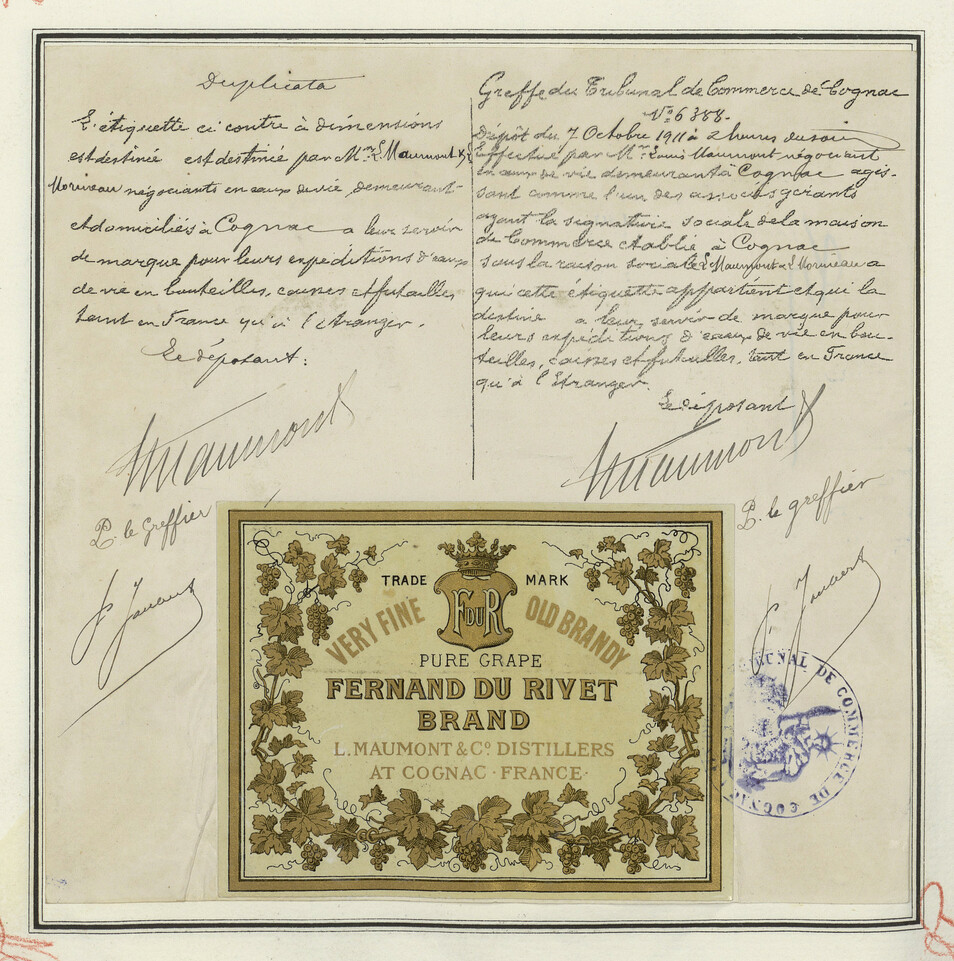 Duplicata
L'étiquette ci contre à dimensions
est destinée est destinée par Mrs L. Maumont & L
Morineau négociants en eaux de vie, demeurant
et domiciliés à Cognac a leur servir
de marque pour leurs expéditions d'eaux
de vie en bouteilles, caisses et futailles
tant en France qu'à l'étranger.
Le déposant:
L Maumont
P. le greffier
Greffe du Tribunal de Commerce de Cognac
No 6388.
Dépôt du 7 Octobre 1911 à 2 heures du soir
Effectué par Mr Louis Maumont négociant
en eaux de vie demeurant à Cognac agis-
sant comme l'un des associés gérants
ayant la signature sociale de la maison
de Commerce établie à Cognac
sous la raison sociale L. Maumont & L Morineau a
qui cette étiquette appartient et qui la
destine a leur servir de marque pour
leurs expéditions d'eaux de vie en bou-
teilles, caisses et futailles, tant en France
qu'à l'Etranger.
Le déposant
L Maumont
P. le greffier
TRADE MARK
F DU R
VERY FINE OLD BRANDY
PURE GRAPE
FERNAND DU RIVET
BRAND
L. MAUMONT & Co DISTILLERS
AT COGNAC · FRANCE ·
TRIBUNAL DE COMMERCE DE COGNAC